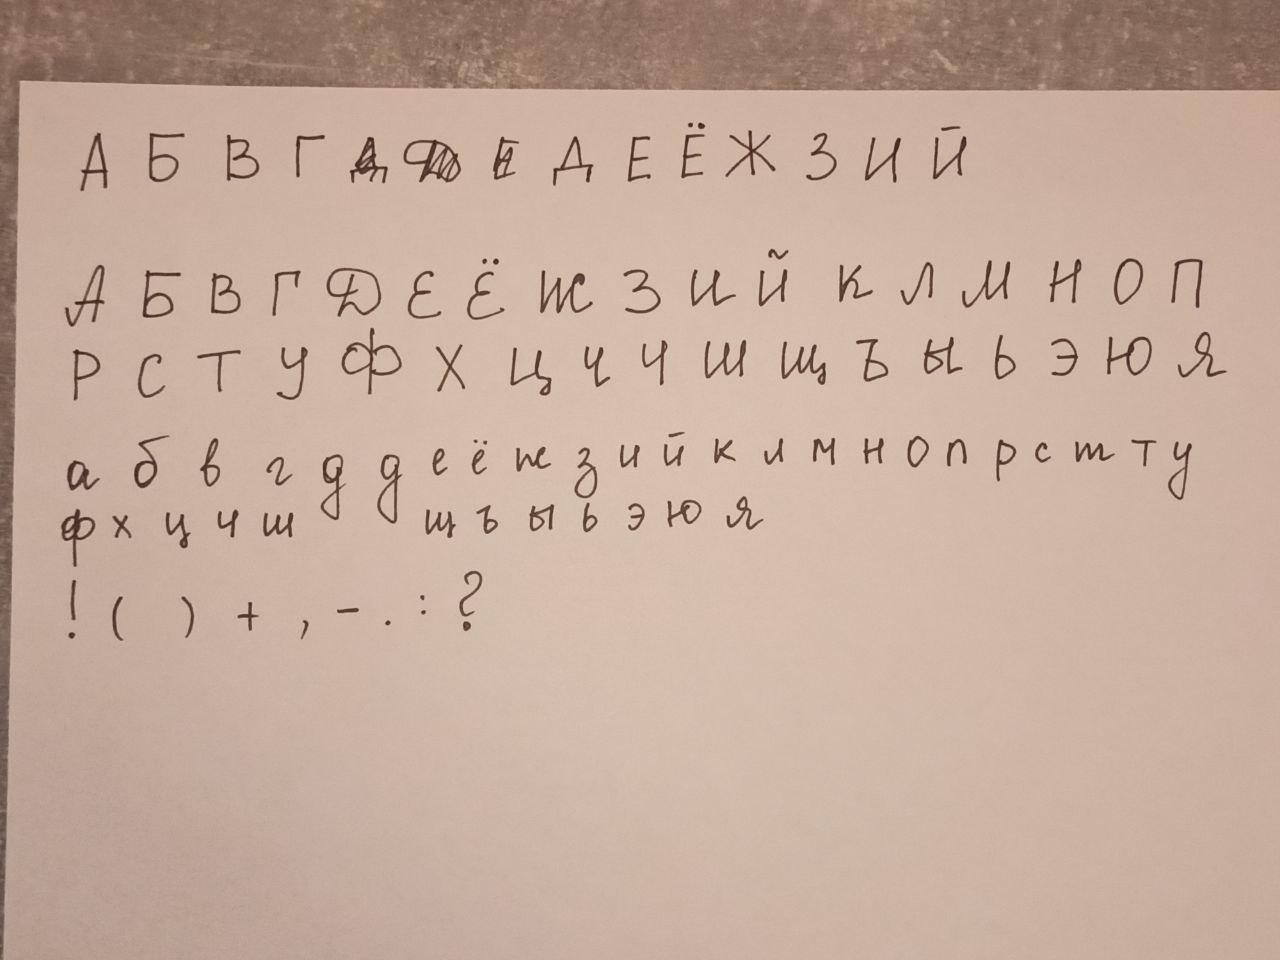 А Б В Г Д Е Ё Ж З И Й
А Б В Г Д Е Ё Ж З И Й К Л М Н О П
Р С Т У Ф Х Ц Ч Ч Ш Щ Ъ Ы Ь Э Ю Я
а б в г д д е ё ж з и й к л м н о п р с т т у
ф х ц ч ш щ ъ ы ь э ю я
! ( ) + , - . : ?